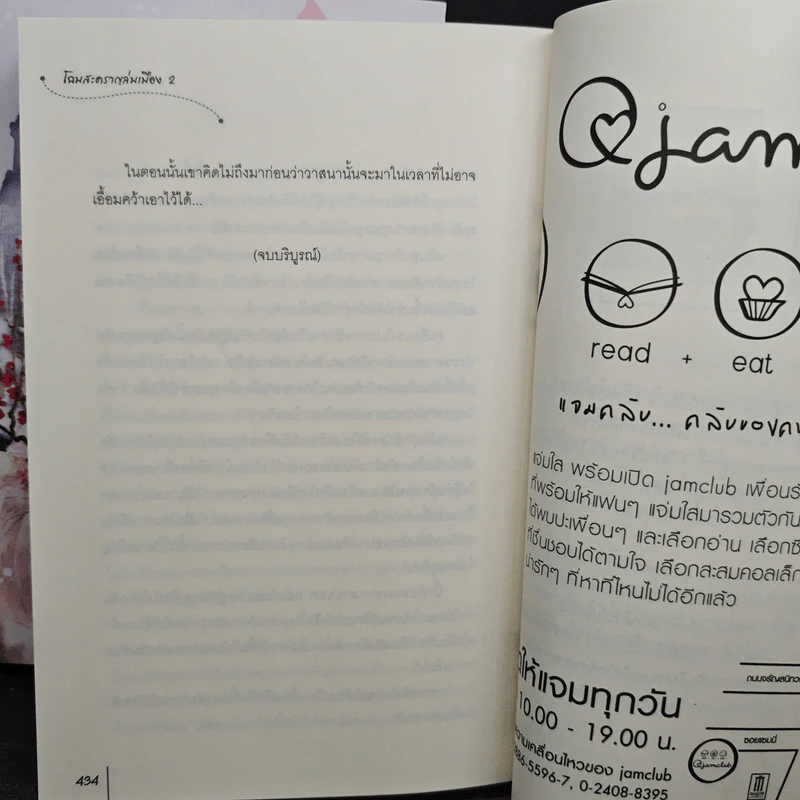 โฉมสะคราญล่มเมือง 2
ในตอนนั้นเขาคิดไม่ถึงมาก่อนว่าวาสนานั้นจะมาในเวลาที่ไม่อาจ
เอื้อมคว้าเอาไว้ได้...
(จบบริบูรณ์)
434
@jam
read + eat
แจมคลับ... คลับของคน
แจ่มใส พร้อมเปิด jamclub เพื่อนรั
ที่พร้อมให้แฟนๆ แจ่มใสมารวมตัวกัน
ได้พบปะเพื่อนๆ และเลือกอ่าน เลือกซื
ที่ชื่นชอบได้ตามใจ เลือกสะสมคอลเล็ก
น่ารักๆ ที่หาที่ไหนไม่ได้อีกแล้ว
ให้แจมทุกวัน
10.00 - 19.00 น.
ความเคลื่อนไหวของ jamclub
886-5596-7, 0-2408-8395
ถนนจรัญสนิทว
ซอยแซมมี่
@jamclub
MAJOR